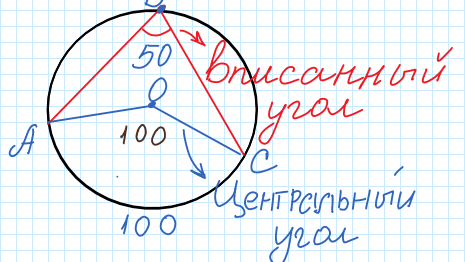 B
50
вписанный
угол
O
A
100
C
Центральный
угол
100